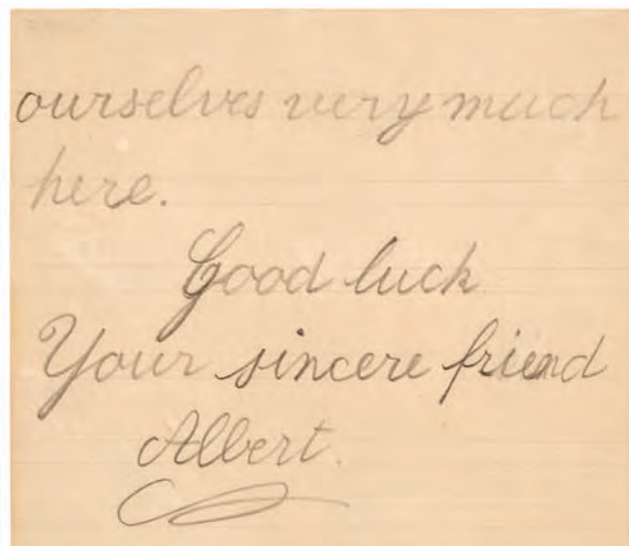 ourselves very much
here.
Good luck
Your sincere friend
Albert.